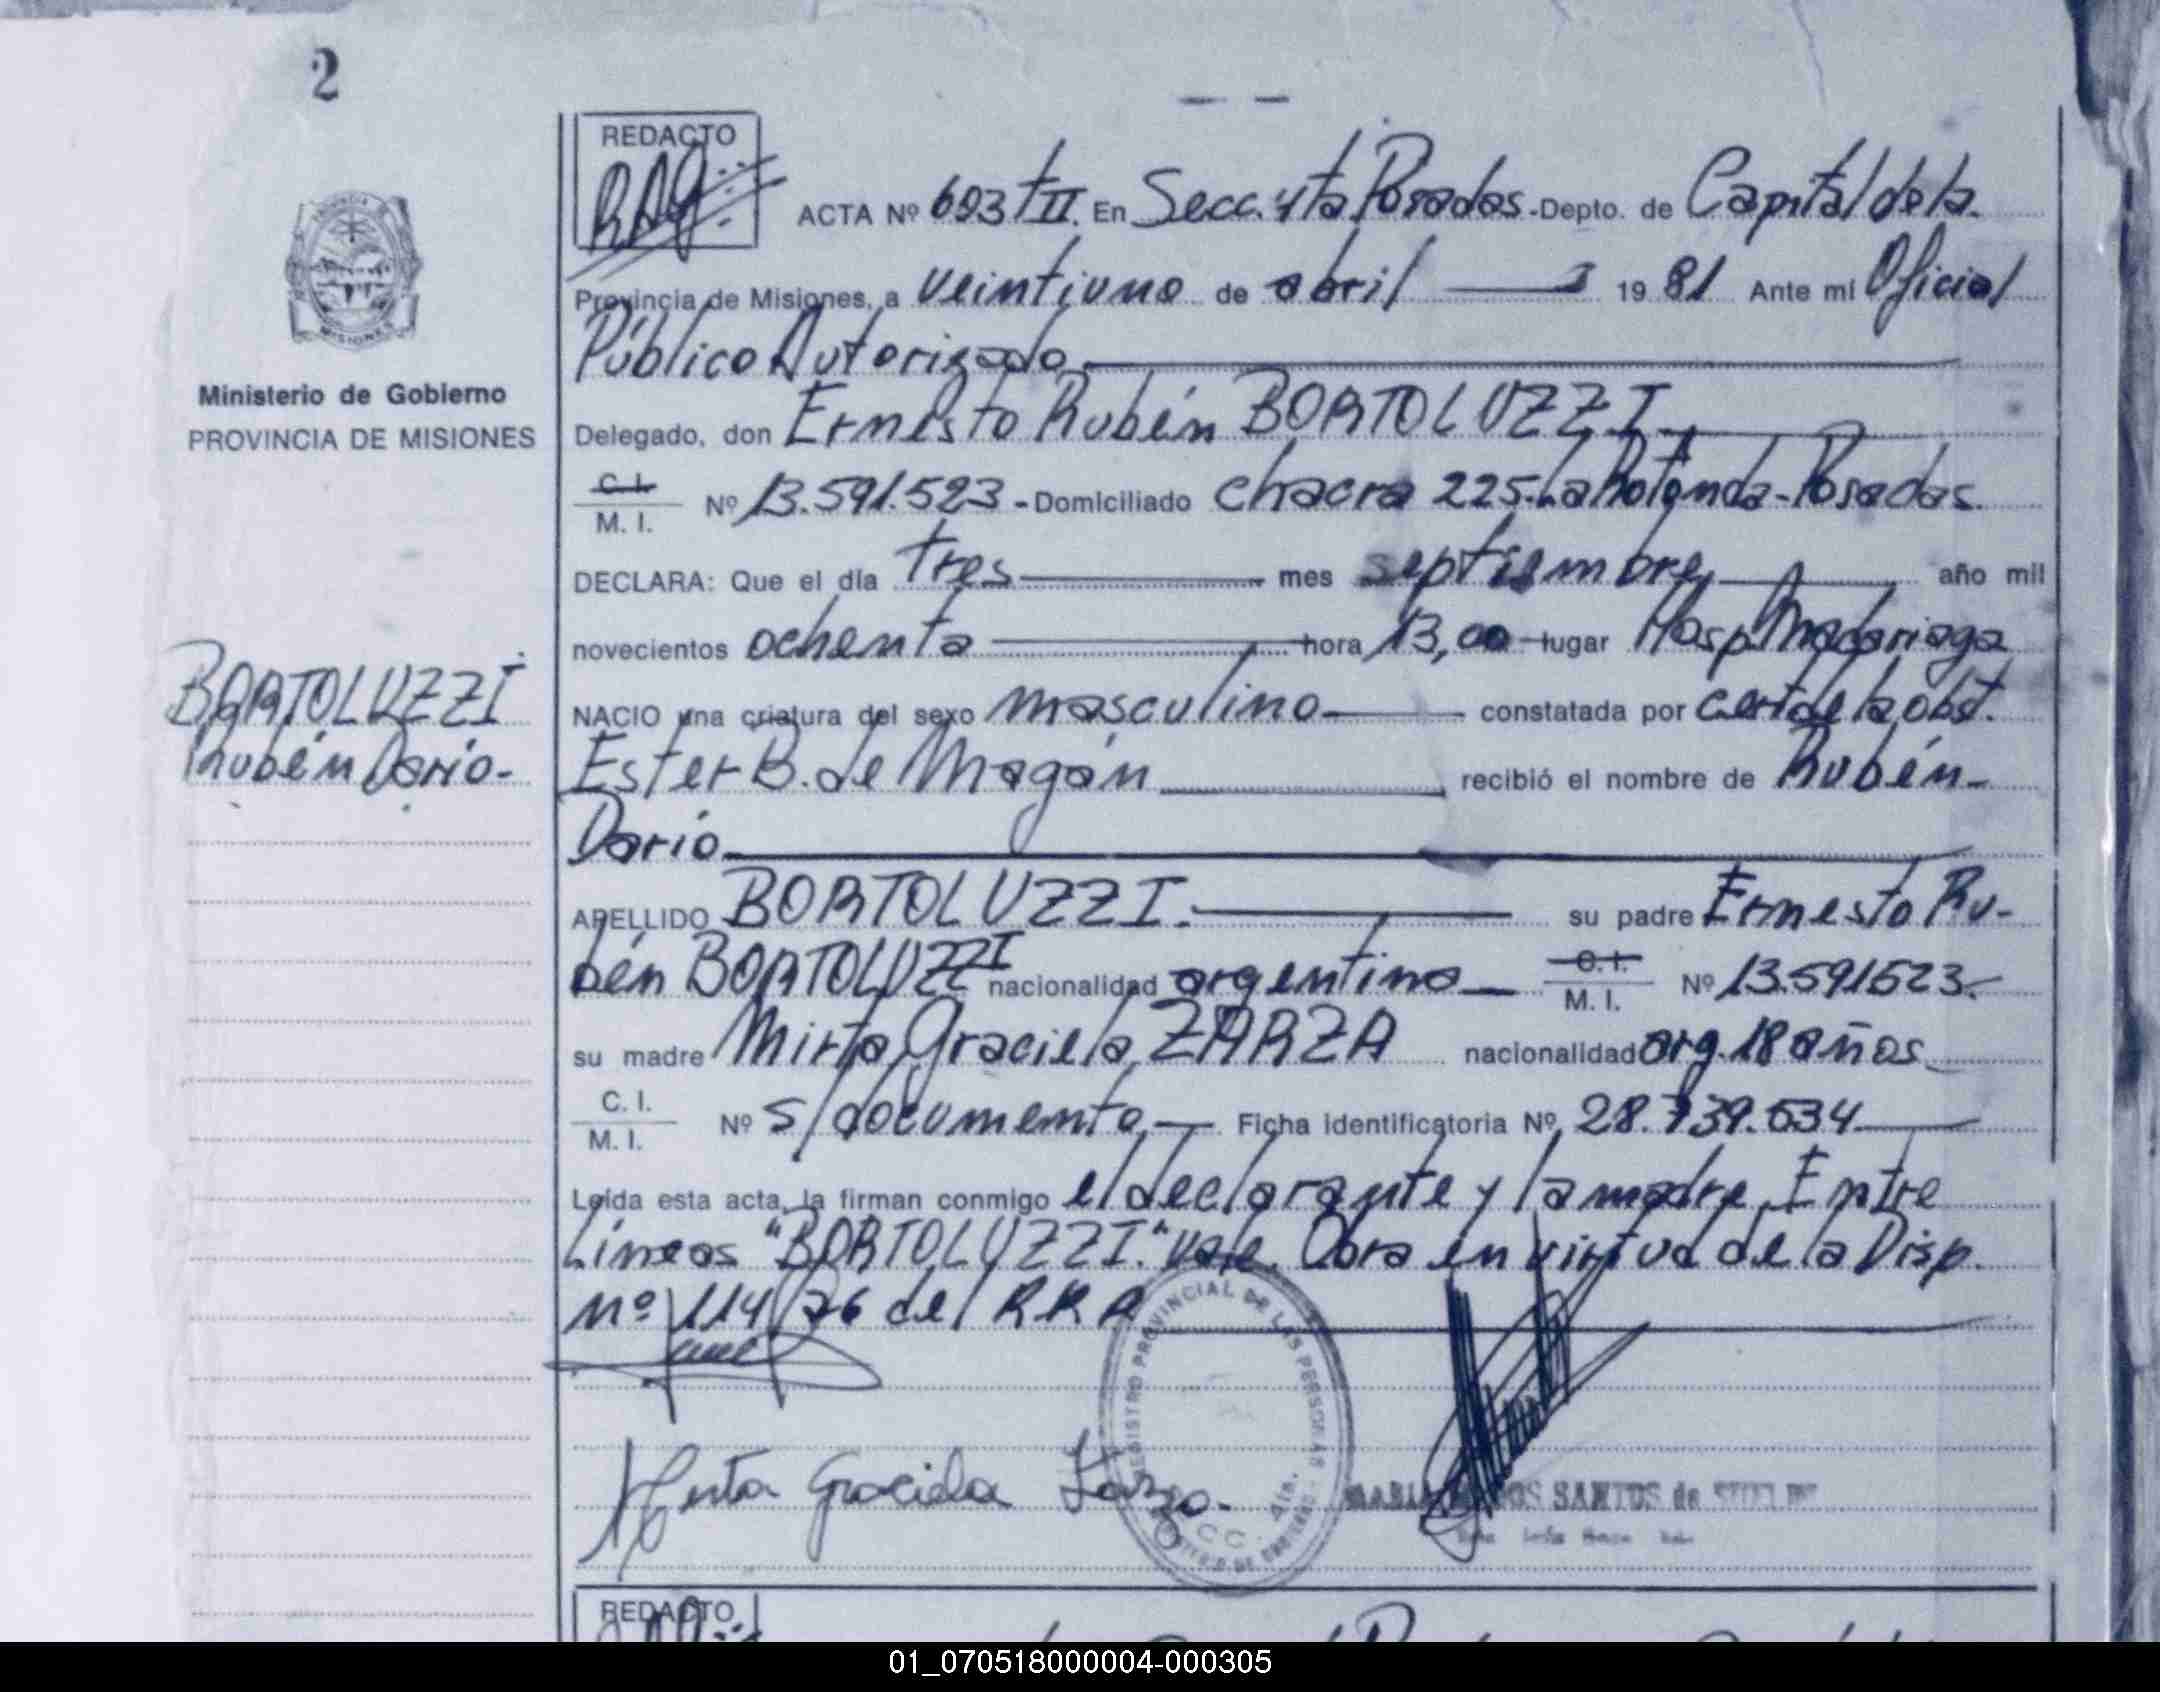 2
REDACTO
ACTA Nº 603 TII. En Secc. 4ta Posadas.-Depto. de Capital de la.
Provincia de Misiones, a veintiuno de abril 1981 Ante mi Oficial
Público Autorizado
Ministerio de Gobierno
PROVINCIA DE MISIONES
MISIONES
Delegado, don Ernesto Rubén BORTOLUZZI
C. I.
M. I. Nº 13.591.523 - Domiciliado chacra 225. La Rotonda - Posadas.
DECLARA: Que el día tres mes septiembre año mil
novecientos ochenta hora 13,00 lugar Hosp. Madariaga
BORTOLUZZI
Rubén Darío-
NACIO una criatura del sexo masculino constatada por cert de la obst.
Ester B. de Magán recibió el nombre de Rubén-
Darío
APELLIDO BORTOLUZZI. su padre Ernesto Ru-
bén BORTOLUZZI nacionalidad argentino C. I.
M. I. Nº 13.591523.
su madre Mirta Graciela ZARZA nacionalidad arg. 18 años
C. I.
M. I. Nº S/documento Ficha identificatoria Nº 28.739.534
Leída esta acta, la firman conmigo el declarante y la madre. Entre
Líneas "BORTOLUZZI." vale. Obra en virtud de la Disp.
Nº 114/76 del RRA
REGISTRO PROVINCIAL DE LAS PERSONAS
Mirta Graciela Zarza.
SANTOS de
REDACTO
01_070518000004-000305